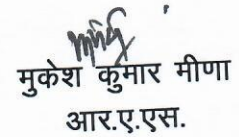 मुकेश कुमार मीणा
आर.ए.एस.